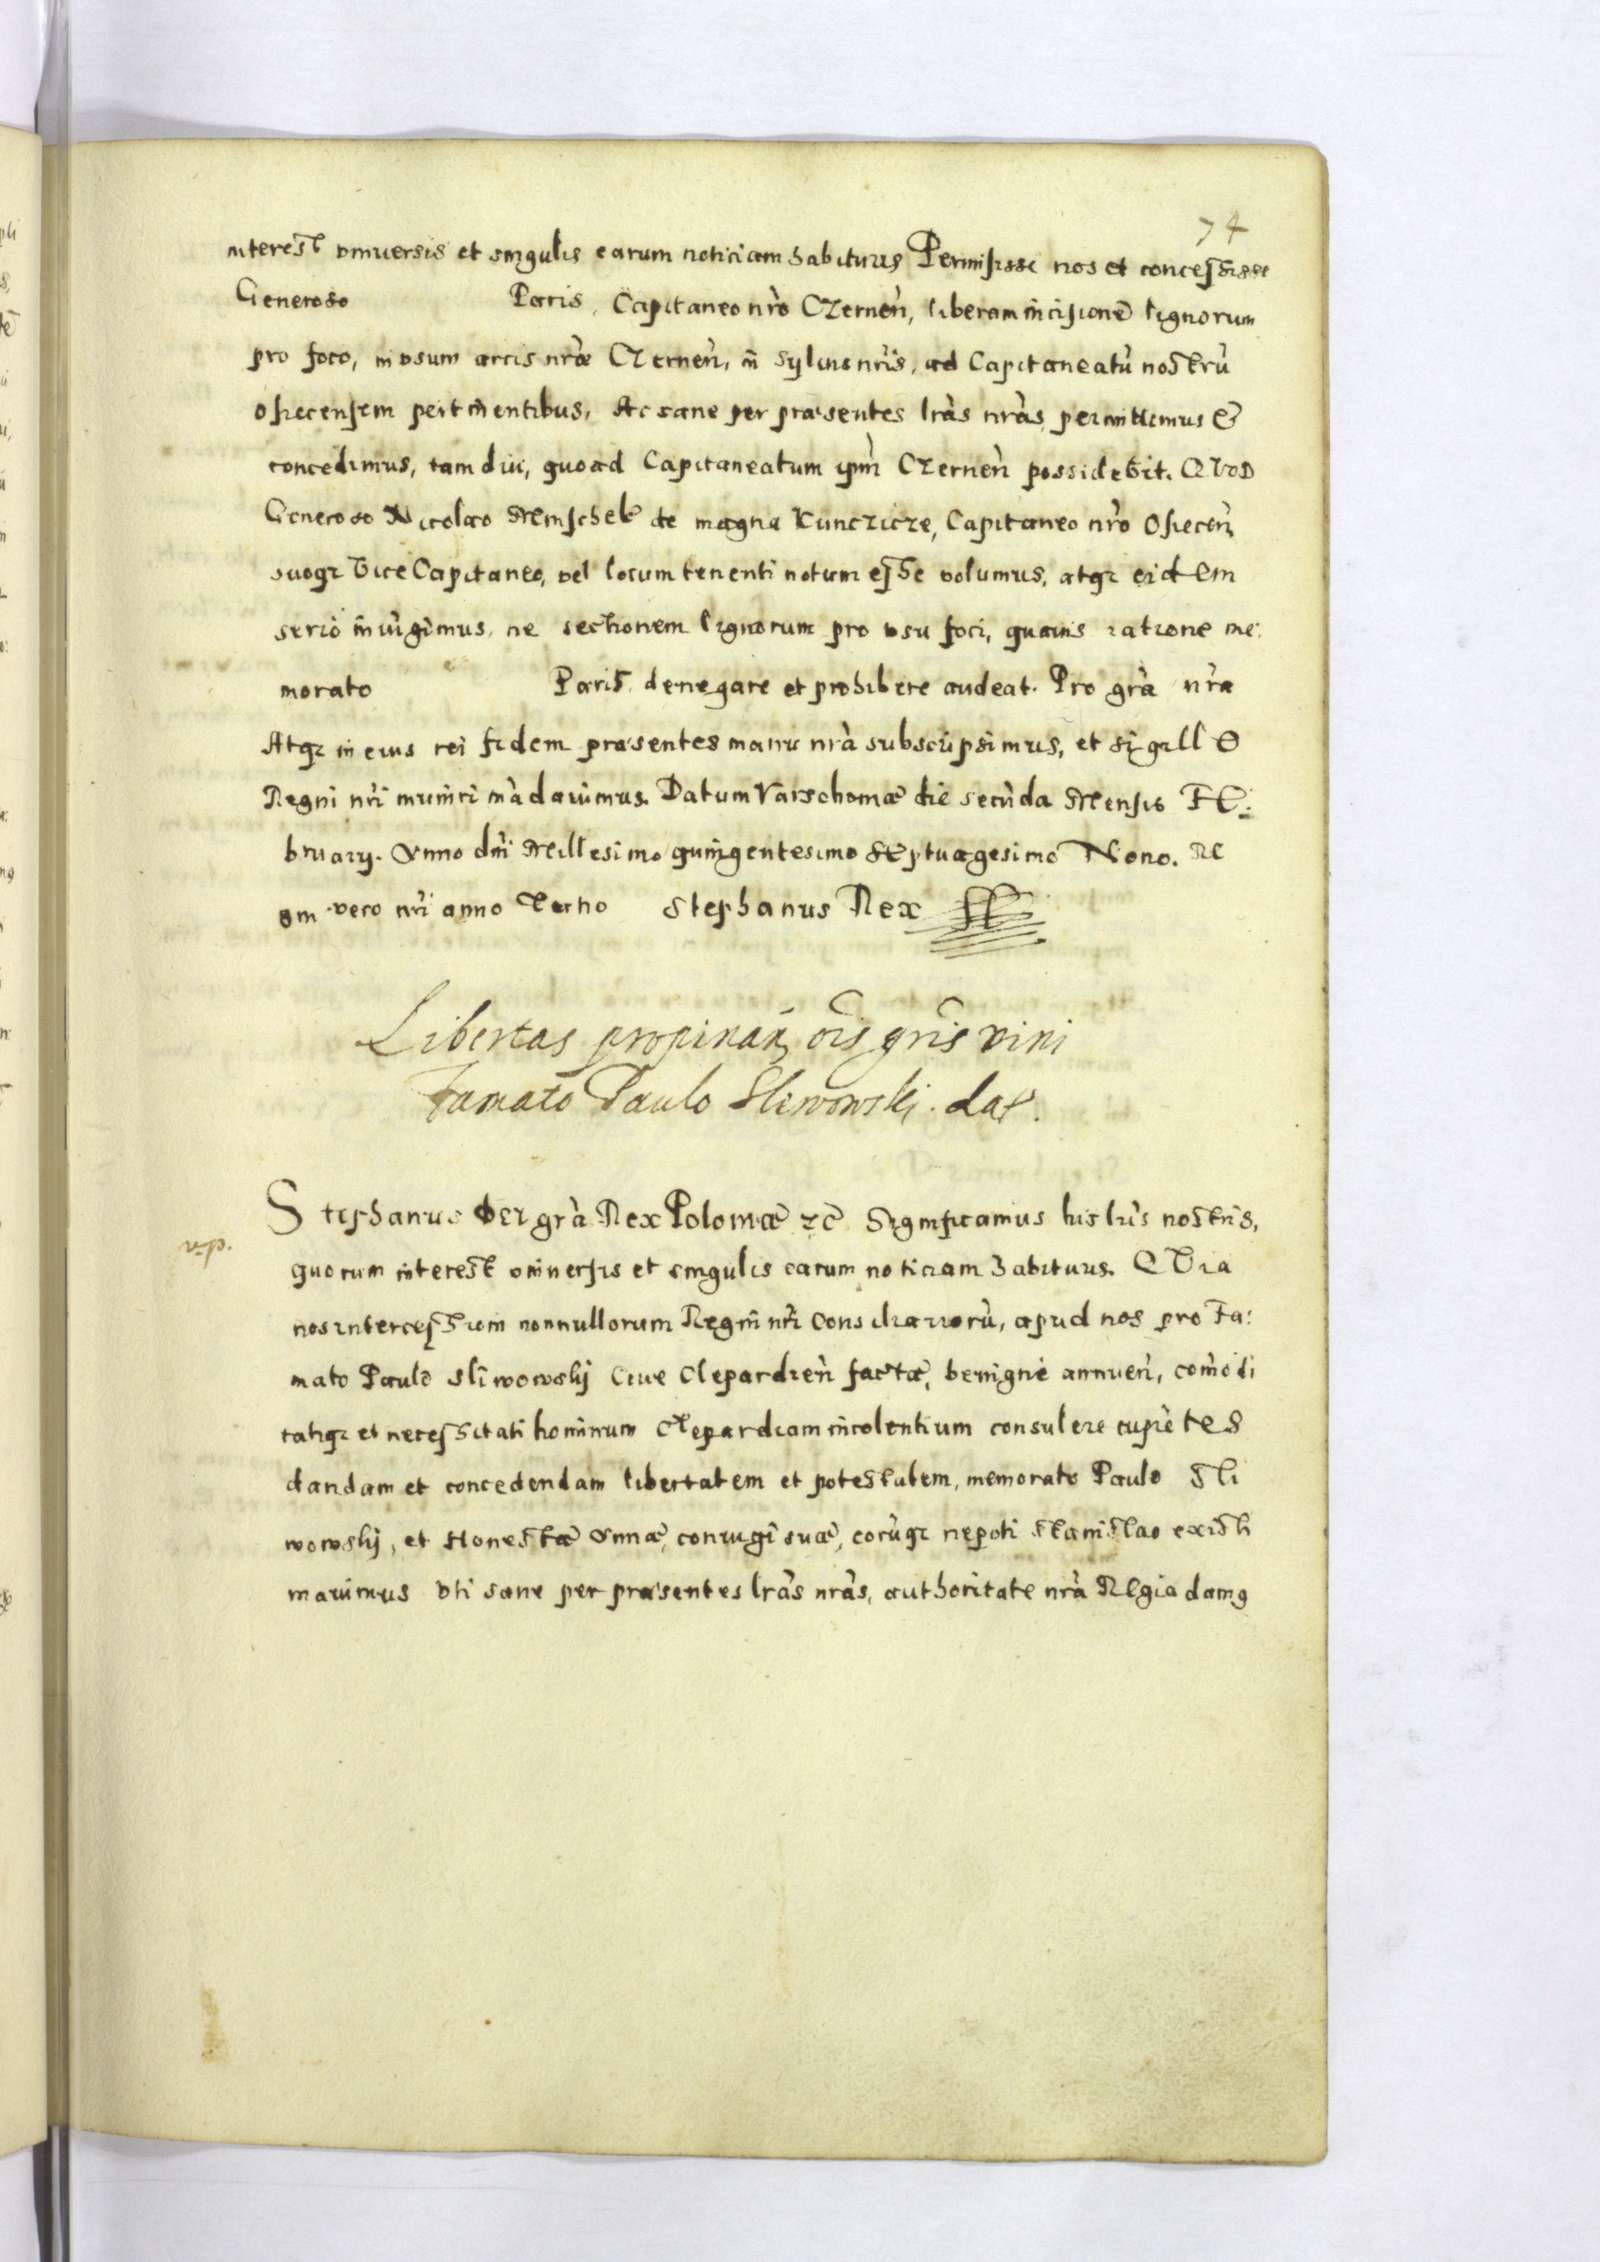 74
interest vniuersis et singulis earum noticiam habituris Permisisse nos et concessisse
Generoso Paris, Capitaneo nrò Czerneǹ, liberam incisionē lignorum
pro foco, in vsum arcis nrǽ Czerneǹ, in syluis nrìs, ad Capitaneatù nostrù
osiecensem pertinentibus, Ac sane per præsentes lràs nràs permittimus &
concedimus, tam diu, quoad Capitaneatum ipm̀ Czerneǹ possidebit. QVOD
Generoso Nicolao Memschek de magna Kunczicze, Capitaneo nrò Osieceǹ,
suoqz Vice Capitaneo, vel locum tenenti notum esse volumus, atqz eidem
serio iniùgimus, ne sectionem lignorum pro vsu foci, quauis ratione me:
morato Paris, denegare et prohibere audeat. Pro grà nrà
Atqz in eius rei fidem præsentes manu nrà subscripsimus, et sigillo
Regni nrì muniri mà dauimus. Datum Varschouiæ die secùda Mensis FE:
bruarij. Anno dnì Millesimo quingentesimo Septuagesimo Nono. RE
gni vero nrì anno Tertio Stephanus Rex
Libertas propinań oīs gnīs vini
Famato Paulo Sliwowski. dat.
Stephanus DEI grà Rex Poloniæ zc̄ Significamus his lrìs nostris,
v.p.
quorum interest vniuersis et singulis earum noticiam habituris. QVia
nos intercessioni nonnullorum Regni nrì Consiliariorù, apud nos pro Fa:
mato Paulo Sliwowskij Ciue Clepardieǹ factæ, benigne annueǹ, com̀odi
tatiqz et necessitati hominum Clepardiam incolentium consulere cupiètes
dandam et concedendam libertatem et potestatem, memorato Paulo Sli
wowskij, et Honestæ Annæ, coniugi suæ, eorùqz nepoti Stanislao existi
mauimus vti sane per præsentes lràs nràs, authoritate nrà Regia damq